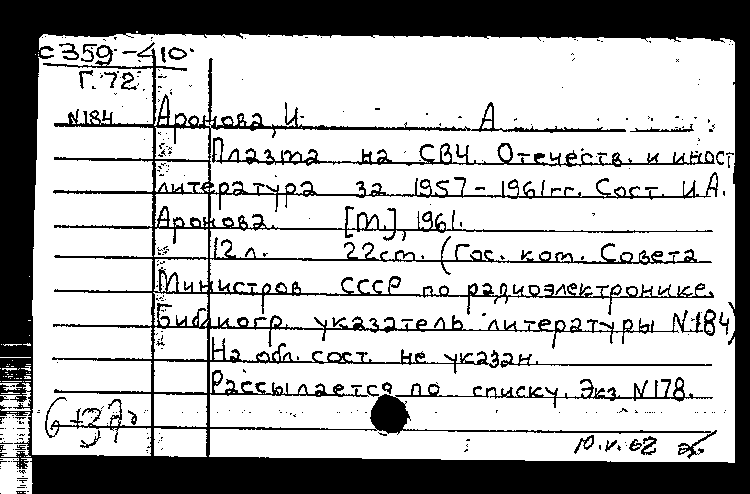 С 359-410
Г.72
N184 Аронова, И. А
Плазма на СВЧ. Отечеств. и иност
литература за 1957-1961гг. Сост. И.А.
Аронова. [М.], 1961.
12 л. 22см. (Гос. ком. Совета
Министров СССР по радиоэлектронике.
Библиогр. указатель литературы N184)
На обл. сост. не указан.
Рассылается по списку. Экз. N178.
10.V.62